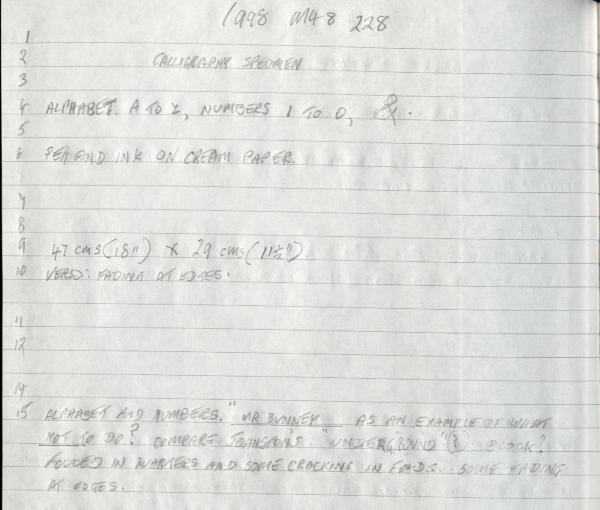 1998 M48 228
1
2 CALLIGRAPHY SPECIMEN
3
4 ALPHABET. A TO Z, NUMBERS 1 TO 0, &.
5
6 PEN AND INK ON CREAM PAPER.
7
8
9 47 cms (18") x 29 cms (11½")
10 VERSO: FADING AT EDGES.
11
12
14
15 ALPHABET AND NUMBERS. "MR BUNNEY AS AN EXAMPLE OF WHAT
NOT TO DO? COMPARE JOHNSTON'S "UNDERGROUND" (?) BLOCK".
FOLDED IN QUARTERS AND SOME CRACKING IN FOLDS. SOME FADING
AT EDGES.